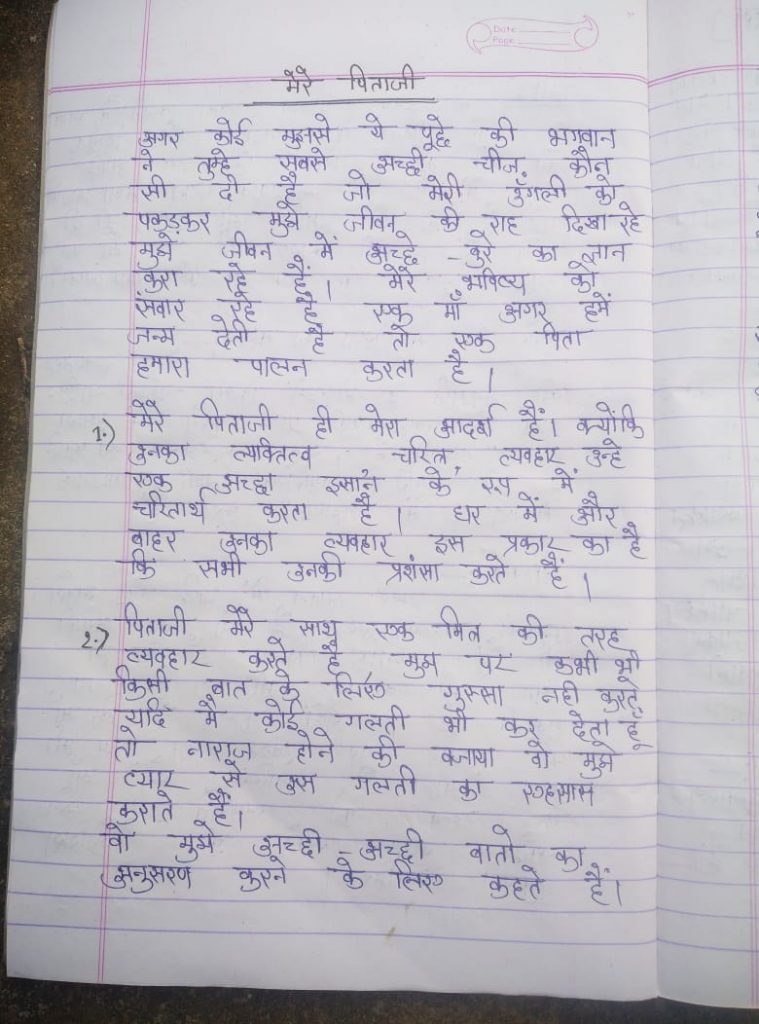 Date
Page
मेरे पिताजी
अगर कोई मुझसे ये पूछे की भगवान
ने तुम्हे सबसे अच्छी चीज कौन
सी दी है जो मेरी उँगली को
पकड़कर मुझे जीवन की राह दिखा रहे
मुझे जीवन में अच्छे - बुरे का ज्ञान
करा रहे हैं। मेरे भविष्य को
संवार रहे हैं एक माँ अगर हमें
जन्म देती है तो एक पिता
हमारा पालन करता है।
1.) मेरे पिताजी ही मेरा आदर्श हैं। क्योंकि
उनका व्यक्तित्व चरित्र, व्यवहार उन्हे
एक अच्छा इसांन के रूप में
चरितार्थ करता है। घर में और
बाहर उनका व्यवहार इस प्रकार का है
कि सभी उनकी प्रशंसा करते हैं।
2.) पिताजी मेरे साथ एक मित्र की तरह
व्यवहार करते है मुझ पर कभी भी
किसी बात के लिए गुस्सा नही करते,
यदि मै कोई गलती भी कर देता हूँ
तो नाराज होने की बजाया वो मुझे
प्यार से उस गलती का एहसास
कराते हैं।
वो मुझे अच्छी - अच्छी बातो का
अनुसरण करने के लिए कहते हैं।